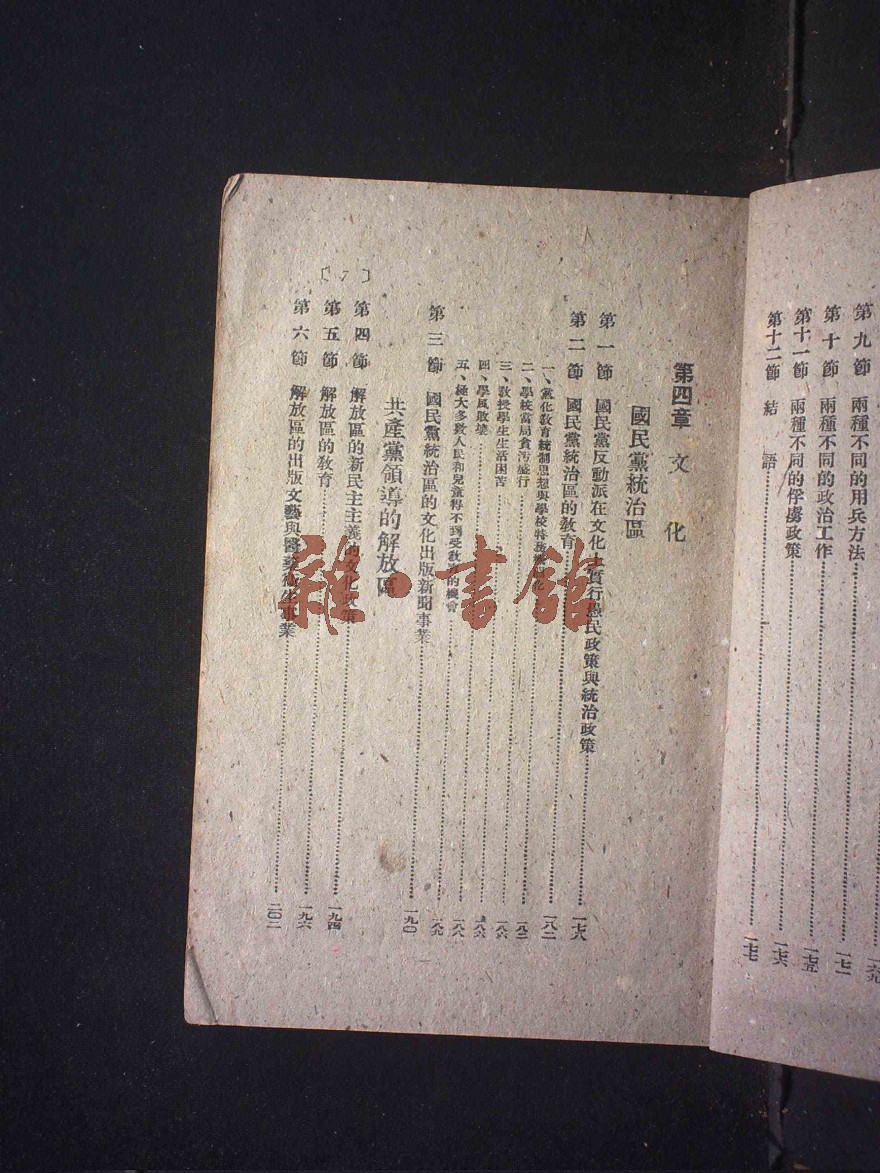 第九節 兩種不同的用兵方法 一六九
第十節 兩種不同的政治工作 一七二
第十一節 兩種不同的俘虜政策 一七五
第十二節 結語 一七七
第四章 文化
國民黨統治區
第一節 國民黨反動派在文化上實行愚民政策與統治政策 一七八
第二節 國民黨統治區的教育 一八二
一、黨化教育統制思想與學校特務機關化
二、學校當局貪汚盛行
三、敎授學生生活困苦 一八六
四、學風敗壞
五、極大多數人民和兒童得不到受敎育的機會
第三節 國民黨統治區的文化出版新聞事業 一九〇
共產黨領導的解放區
第四節 解放區的新民主主義的文化政策 一九四
第五節 解放區的敎育 一九六
第六節 解放區的出版文藝與醫藥衞生事業 二〇二
〔7〕
雜·書館